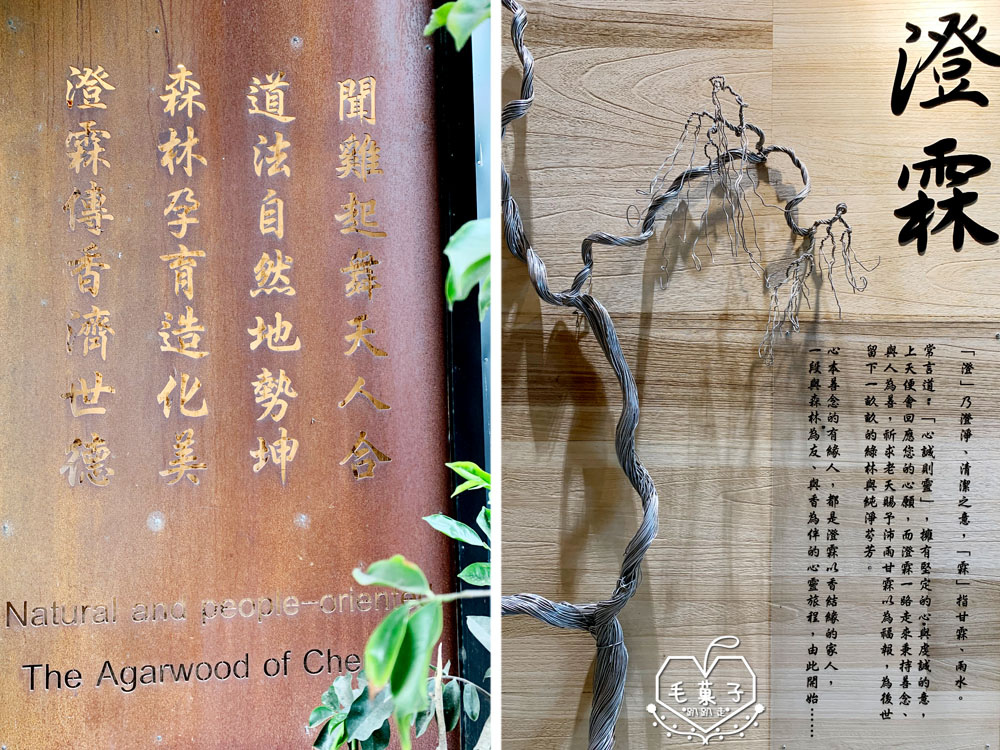 聞雞起舞天人合
道法自然地勢坤
森林孕育造化美
澄霖傳香濟世德
Natural and people-oriented
The Agarwood of Che
澄霖
「澄」乃澄淨、清潔之意，「霖」指甘霖、雨水。
常言道：「心誠則靈」，擁有堅定的心與虔誠的意，
上天便會回應您的心願，而澄霖一路走來秉持善念、
與人為善，祈求老天賜予沛雨甘霖以為福報，為後世
留下一畝畝的綠林與純淨芬芳。
心本善念的有緣人，都是澄霖以香結緣的家人，
一段與森林為友、與香為伴的心靈旅程，由此開始……
毛菓子
趴趴走